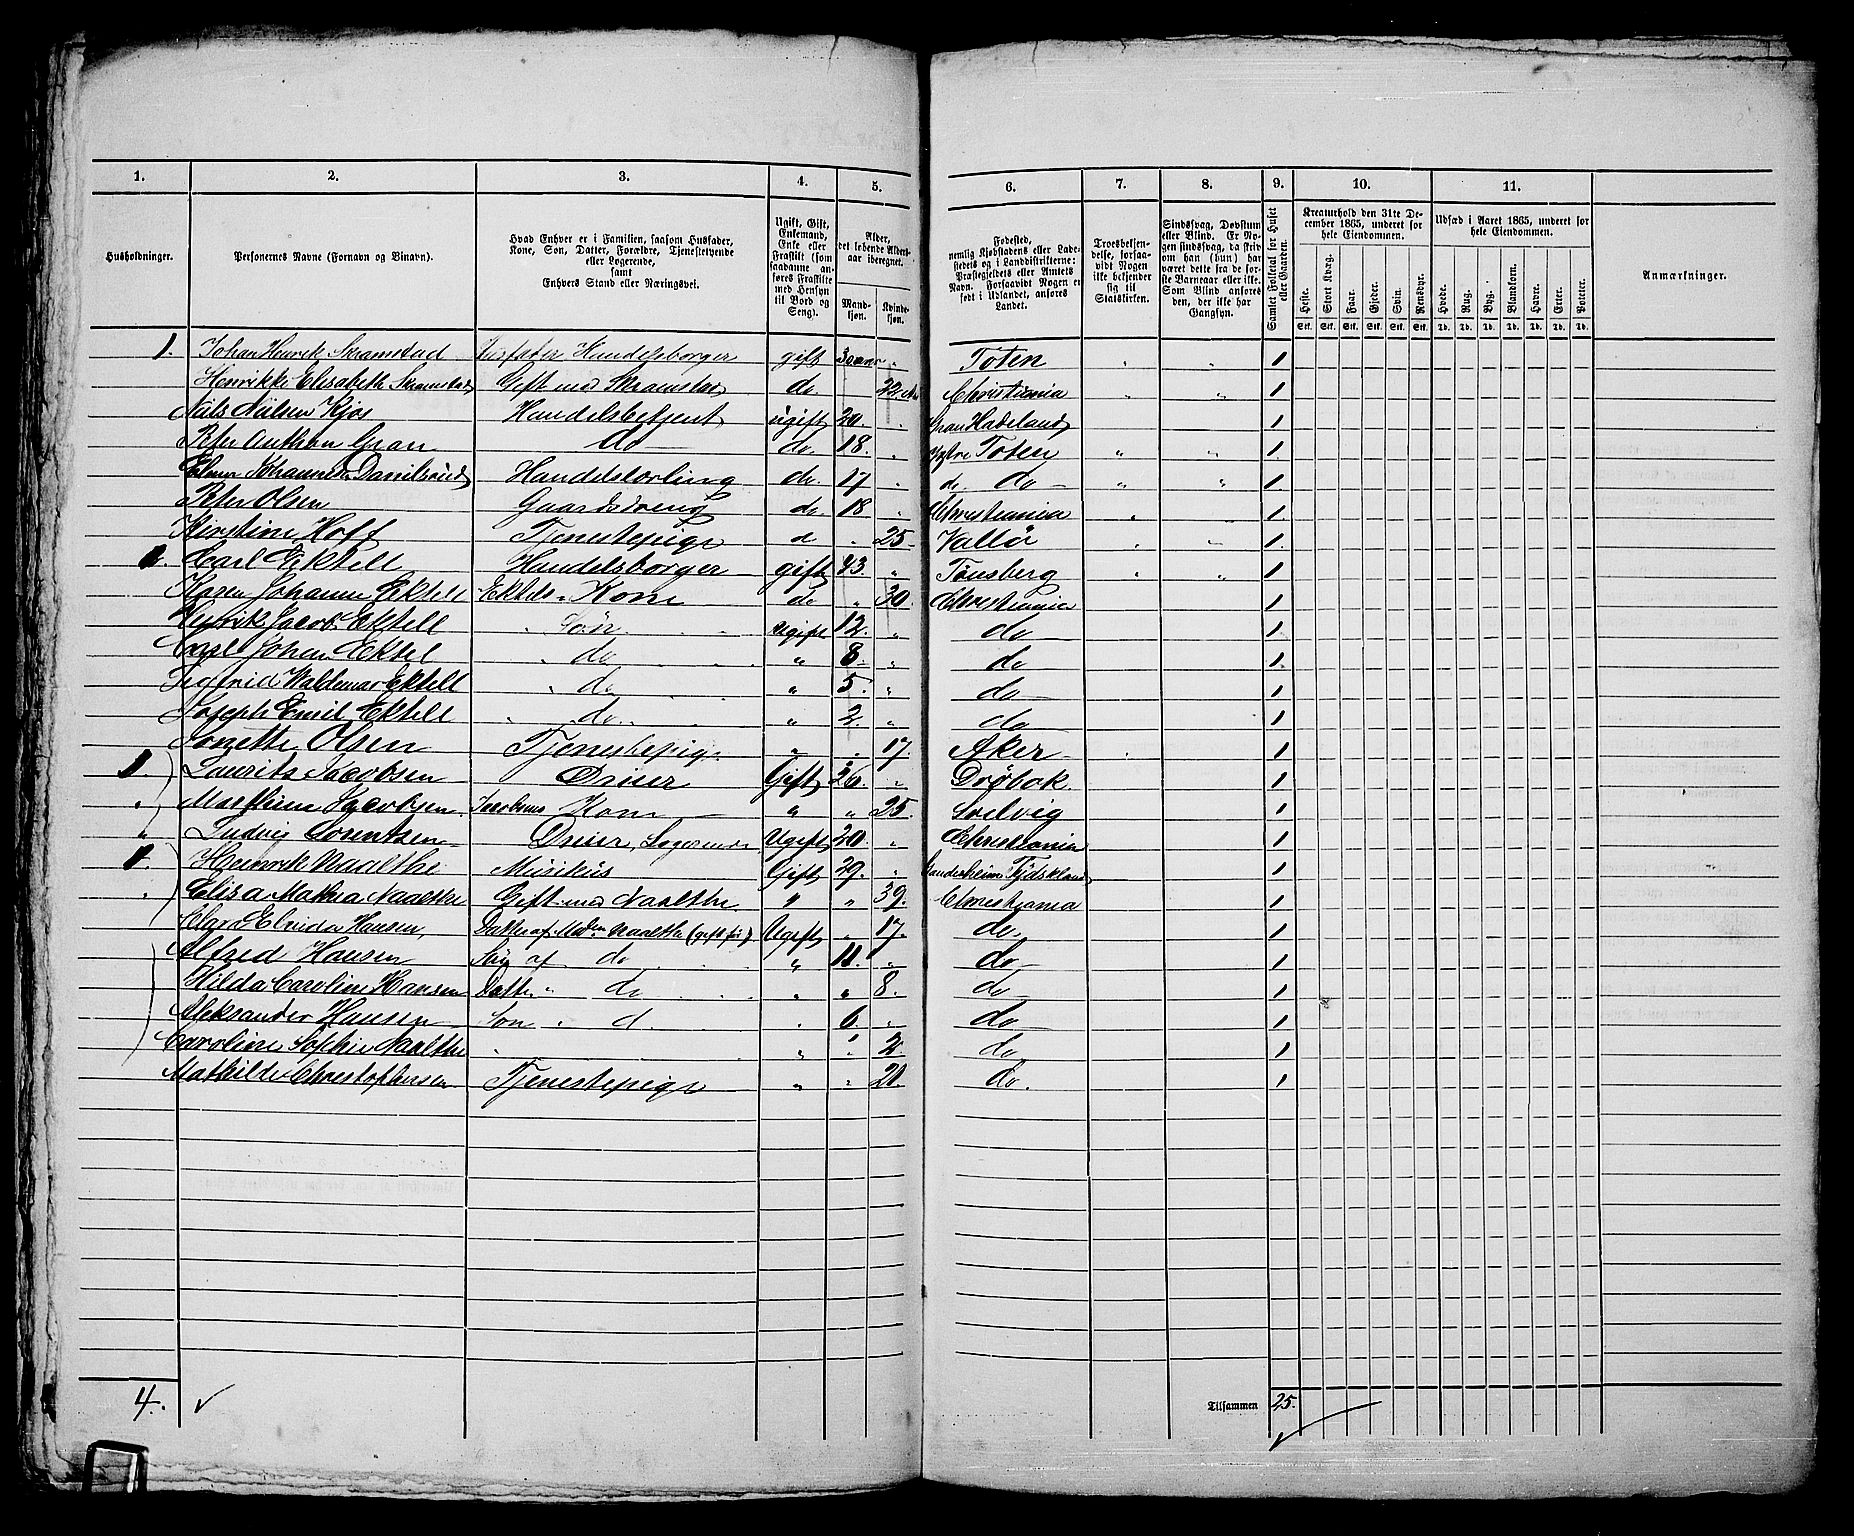 1. 2. 3. 4. 5. 6. 7. 8. 9. 10. 11.
Husholdninger.
Personernes Navne (Fornavn og Binavn).
Hvad Enhver er i Familien, saasom Husfader,
Kone, Søn, Datter, Forældre, Tjenestetyende
eller Logerende,
samt
Enhvers Stand eller Næringsvei.
Ugift, Gift,
Enkemand,
Enke eller
Fraskilt (som
saadanne an-
føres Fraskilte
med Hensyn
til Bord og
Seng).
Alder,
det løbende Alders-
aar iberegnet.
Mand-
kjøn.
Kvinde-
kjøn.
Fødested,
nemlig Kjøbstadens eller Lade-
stedets og i Landdistrikterne:
Præstegjeldets eller Amtets
Navn. Forsaavidt Nogen er
født i Udlandet, anføres
Landet.
Troesbekjen-
delse, forsaa-
vidt Nogen
ikke bekjender
sig til
Statskirken.
Sindssvag, Døvstum
eller Blind. Er No-
gen sindssvag, da skriv
om han (hun) har
været dette fra de før-
ste Barneaar eller ikke.
Som Blind anføres
den, der ikke har
Gangsyn.
Samlet Folketal for Huset
eller Gaarden.
Kreaturhold den 31te De-
cember 1865, underet for
hele Eiendommen.
Heste. Stort Kvæg. Faar. Gjeder. Svin. Rensdyr.
Stk. Stk. Stk. Stk. Stk. Stk.
Udsæd i Aaret 1865, underet for
hele Eiendommen.
Hvede. Rug. Byg. Blandkorn. Havre. Erter. Poteter.
Td. Td. Td. Td. Td. Td. Td.
Anmærkninger.
1. Johan Henrik Skramstad Husfader Handelsborger gift 30 aar „ Toten „ „ 1
Henrikke Elisabeth Skramstad Gift med Skramstad do. 22 Christiania „ „ 1
Nils Nilsen Kjos Handelsbetjent ugift 20. „ Gran Hadeland 1
Peter Anthon Gran do do. 18. „ Østre Toten „ „ 1
Johannes Danielsrud Handelslærling do. 17 „ do. do „ „ 1.
Peter Olsen Gaardsdreng do. 18 „ Christiania „ „ 1.
Kirstine Hoff Tjenestepige d „ 25 Vallø „ „ 1.
1. Carl Ektell Handelsborger gift 43. „ Tønsberg „ „ 1
Karen Johanne Ektell Ektels Kone do „ 30. Christiania 1
Henrik Jacob Ektell „ Søn Ugift 12. „ do 1
Carl Johan Ektel „ do „ 8. „ do 1.
Sigfrid Valdemar Ektell „ do „ 5. „ do 1
Joseph Emil Ektell „ do „ 2. „ do 1
Olsen Tjenestepige „ „ 17. Aker 1
1. Laurits Jacobsen Gift 26. „ Drøbak 1
„ Marthine Jacobsen Jacobsens Kone „ „ 25. Svelvig 1
„ Ludvig Lorentsen Logerende Ugift 20. „ Christiania 1
1. Henrik Naalthe Musikus Gift 29. „ Gandersheim Tydskland 1
„ Elisa Mathea Naalthe Gift med Naalthe. „ „ 39. Christiania 1
Clara Elvida Hansen, Datter af Mad. Naalthe (gift før) Ugift „ 17. do. 1
Alfred Hansen Søn af do „ 11. „ do 1
Hilda Caroline Hansen Datter „ do „ „ 8. do 1
Aleksander Hansen Søn „ d. „ 6. „ do 1
Caroline Sophie Naalthe „ „ „ 2. do 1
Mathilde Christophersen Tjenestepige „ „ 21. do. 1
4. ✓
Tilsammen 25.